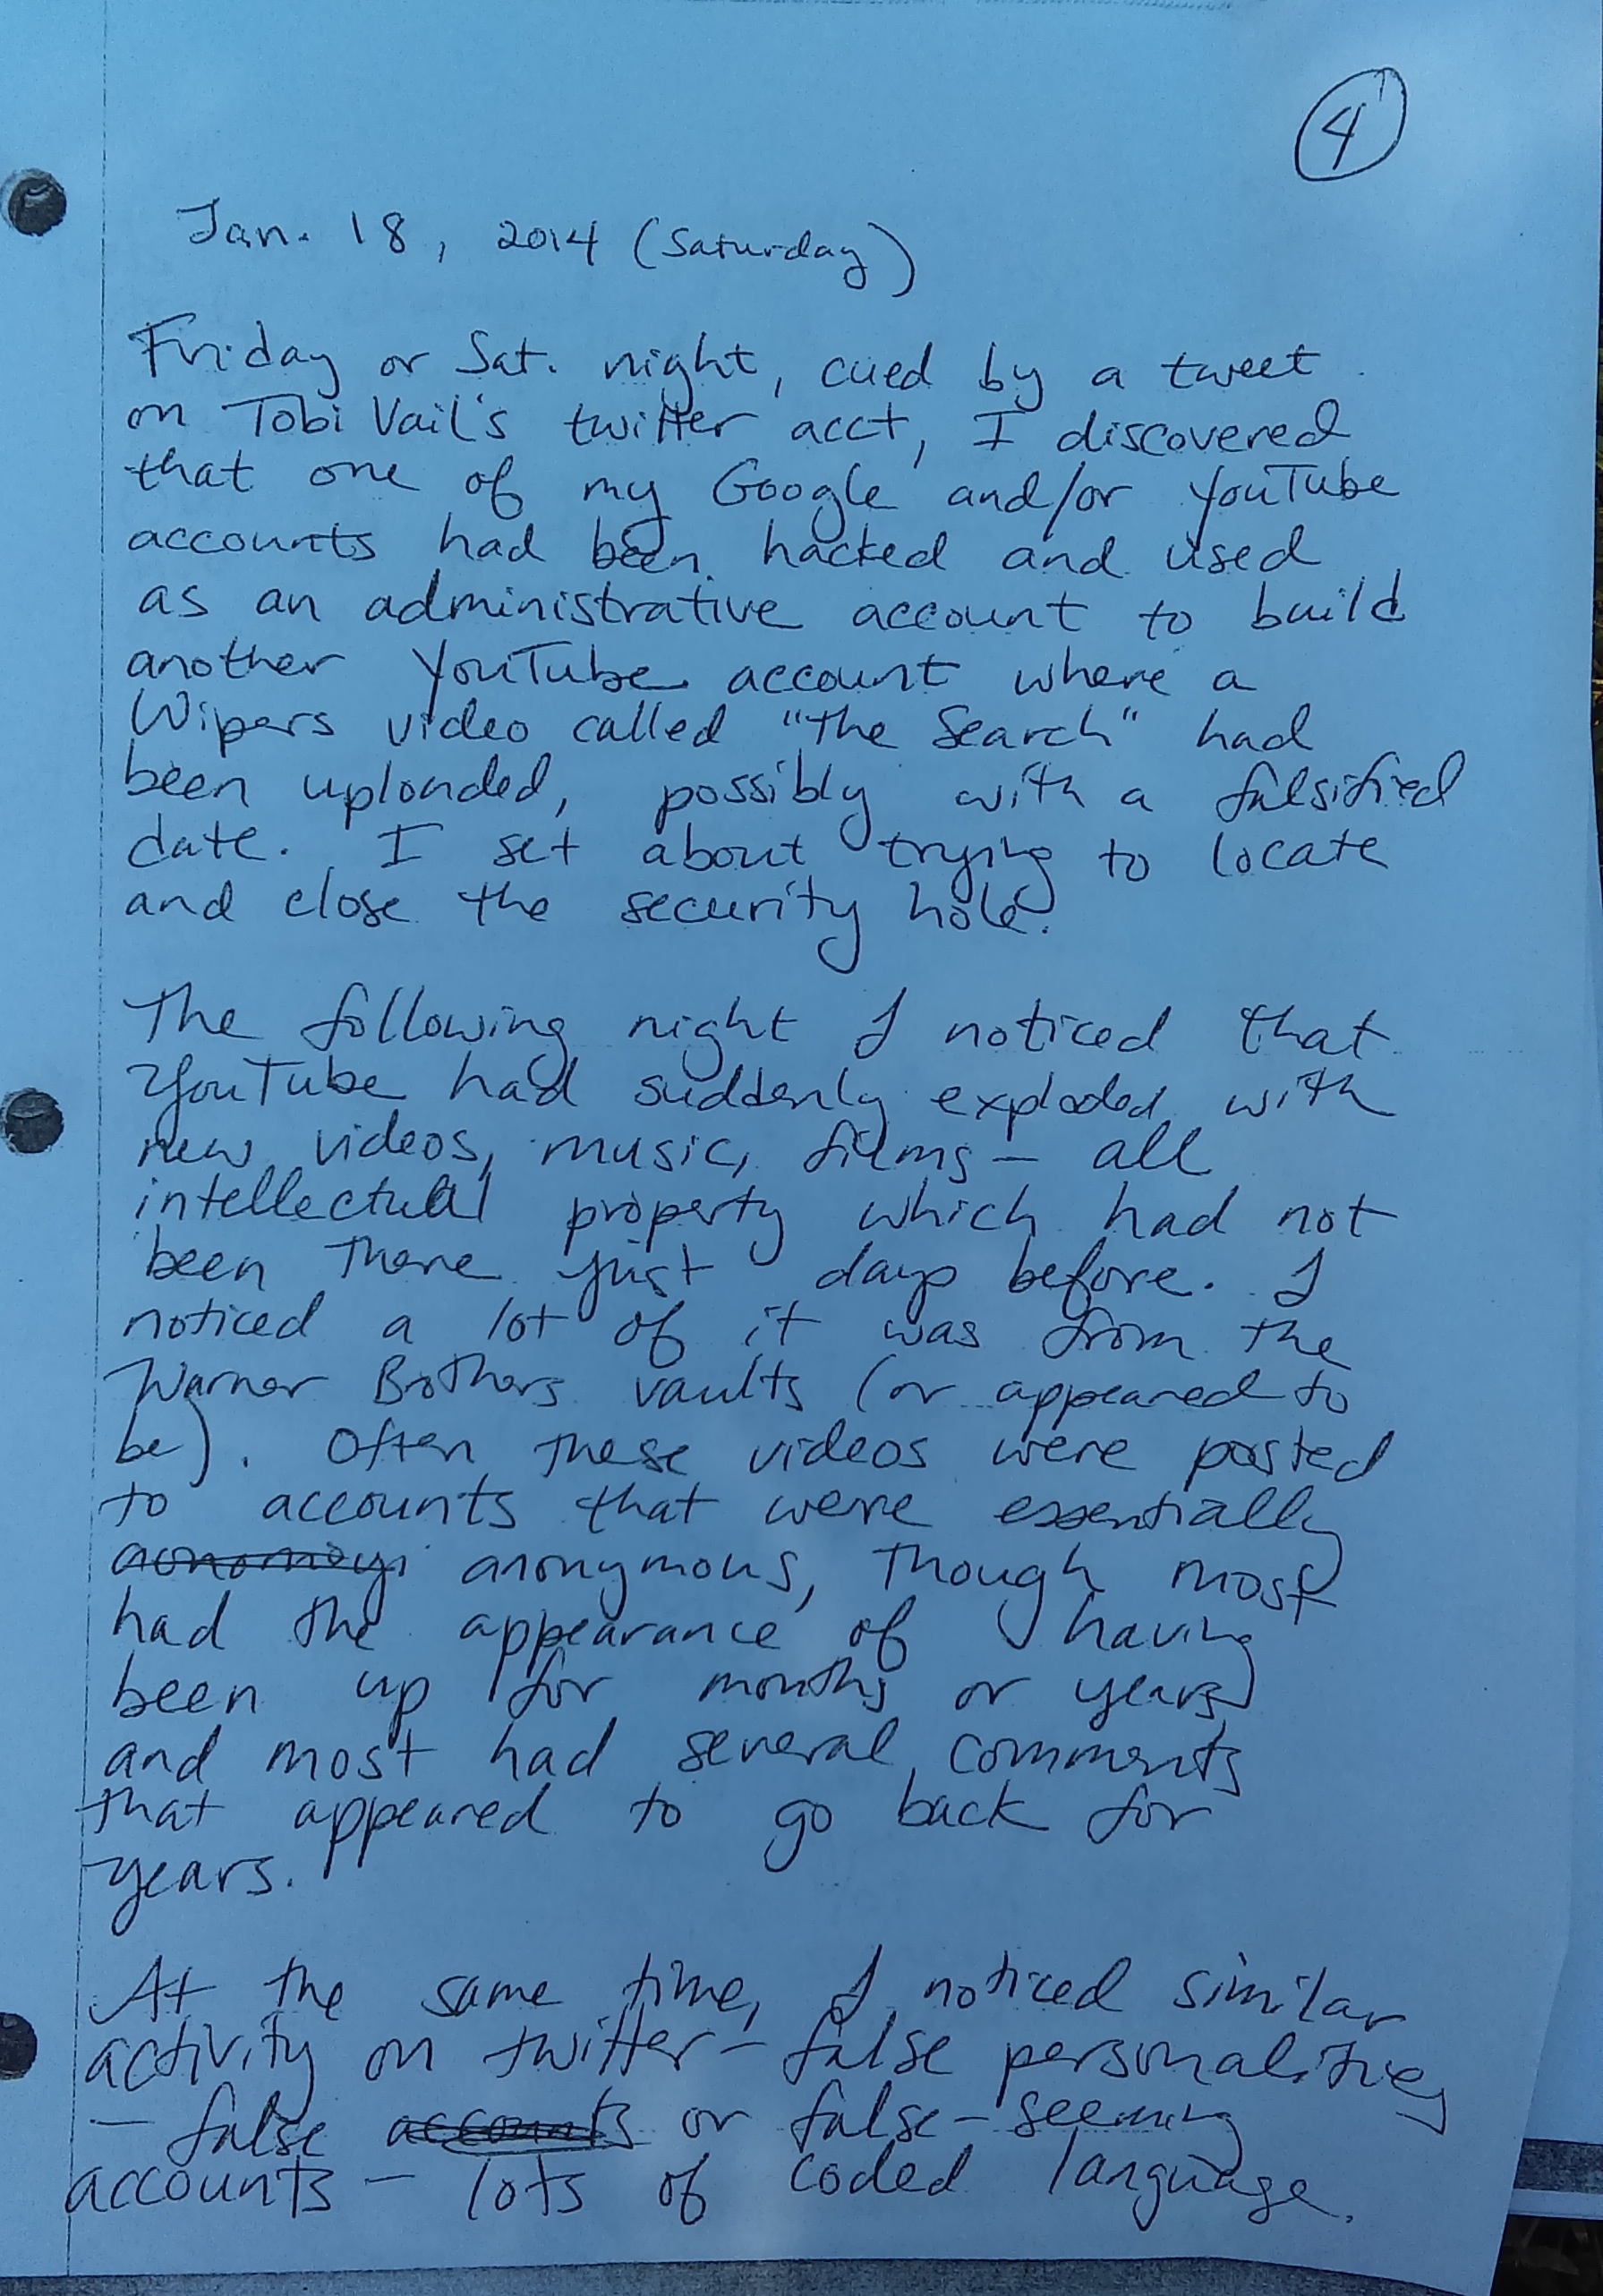 4
Jan. 18, 2014 (Saturday)
Friday or Sat. night, cued by a tweet
on Tobi Vail's twitter acct, I discovered
that one of my Google and/or YouTube
accounts had been hacked and used
as an administrative account to build
another YouTube account where a
Wipers video called "the Search" had
been uploaded, possibly with a falsified
date. I set about trying to locate
and close the security hole.
The following night I noticed that
YouTube had suddenly exploded with
new videos, music, films – all
intellectual property which had not
been there just days before. I
noticed a lot of it was from the
Warner Brothers vaults (or appeared to
be). Often these videos were posted
to accounts that were essentially
anonymous, though most
had the appearance of having
been up for months or years
and most had several comments
that appeared to go back for
years.
At the same time, I noticed similar
activity on twitter – false personalities
– false accounts or false-seeming
accounts – lots of coded language.